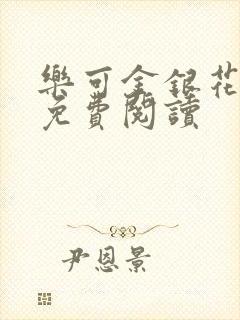 樂可金銀花
免費閱讀
尹恩景